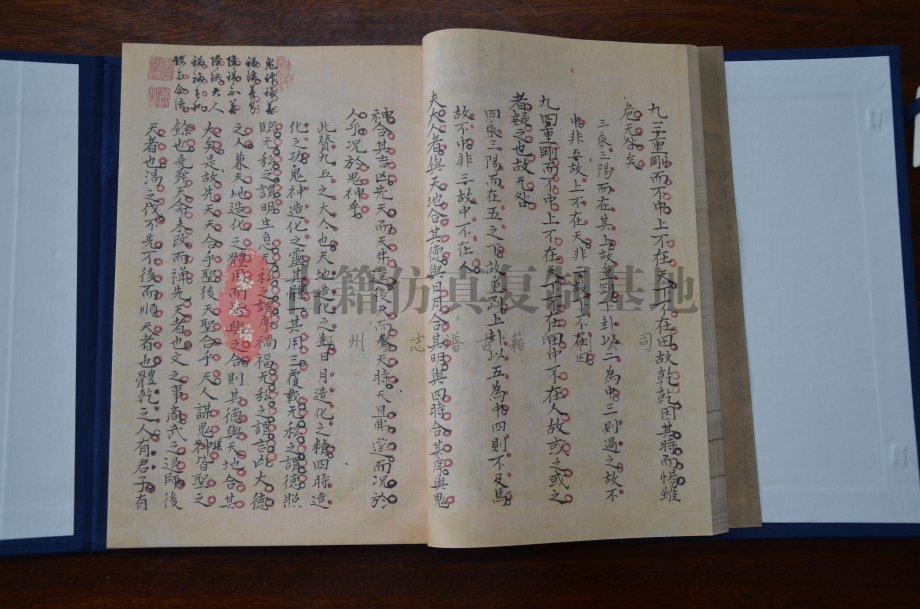 九三重剛而不中上不在天下不在田故乾乾因其時而惕雖
危无咎矣
三乘二陽而在其上故重剛下卦以二為中三則過之故不
中非五故上不在天非二故下不在田
九四重剛而不中上不在天下不在田中不在人故或之或之
者疑之也故无咎
四乘三陽而在五之下故重剛上卦以五為中四則不及焉
故不中非三故中不在人
夫大人者與天地合其德與日月合其明與四時合其序與鬼
神合其吉凶先天而天弗違後天而奉天時天且弗違而況於
人乎況於鬼神乎
此贊九五之大人也天地造化之對日月造化之精四時造
化之功鬼神造化之靈其體一其用三覆載无私之謂德照
臨无私之謂明生息无私之謂序禍福无私之謂吉凶大德
之人兼天地造化之體用而與之合則其德與天地合其
大矣是故先天天合乎聖後天聖合乎天人謀鬼神皆聖之
餘也堯舜天命未改而禪先天者也文之事商武之退師後
天者也湯之伐不先不後而順天者也體乾之人有君子有
古籍仿真复制基地
州志普古籍司